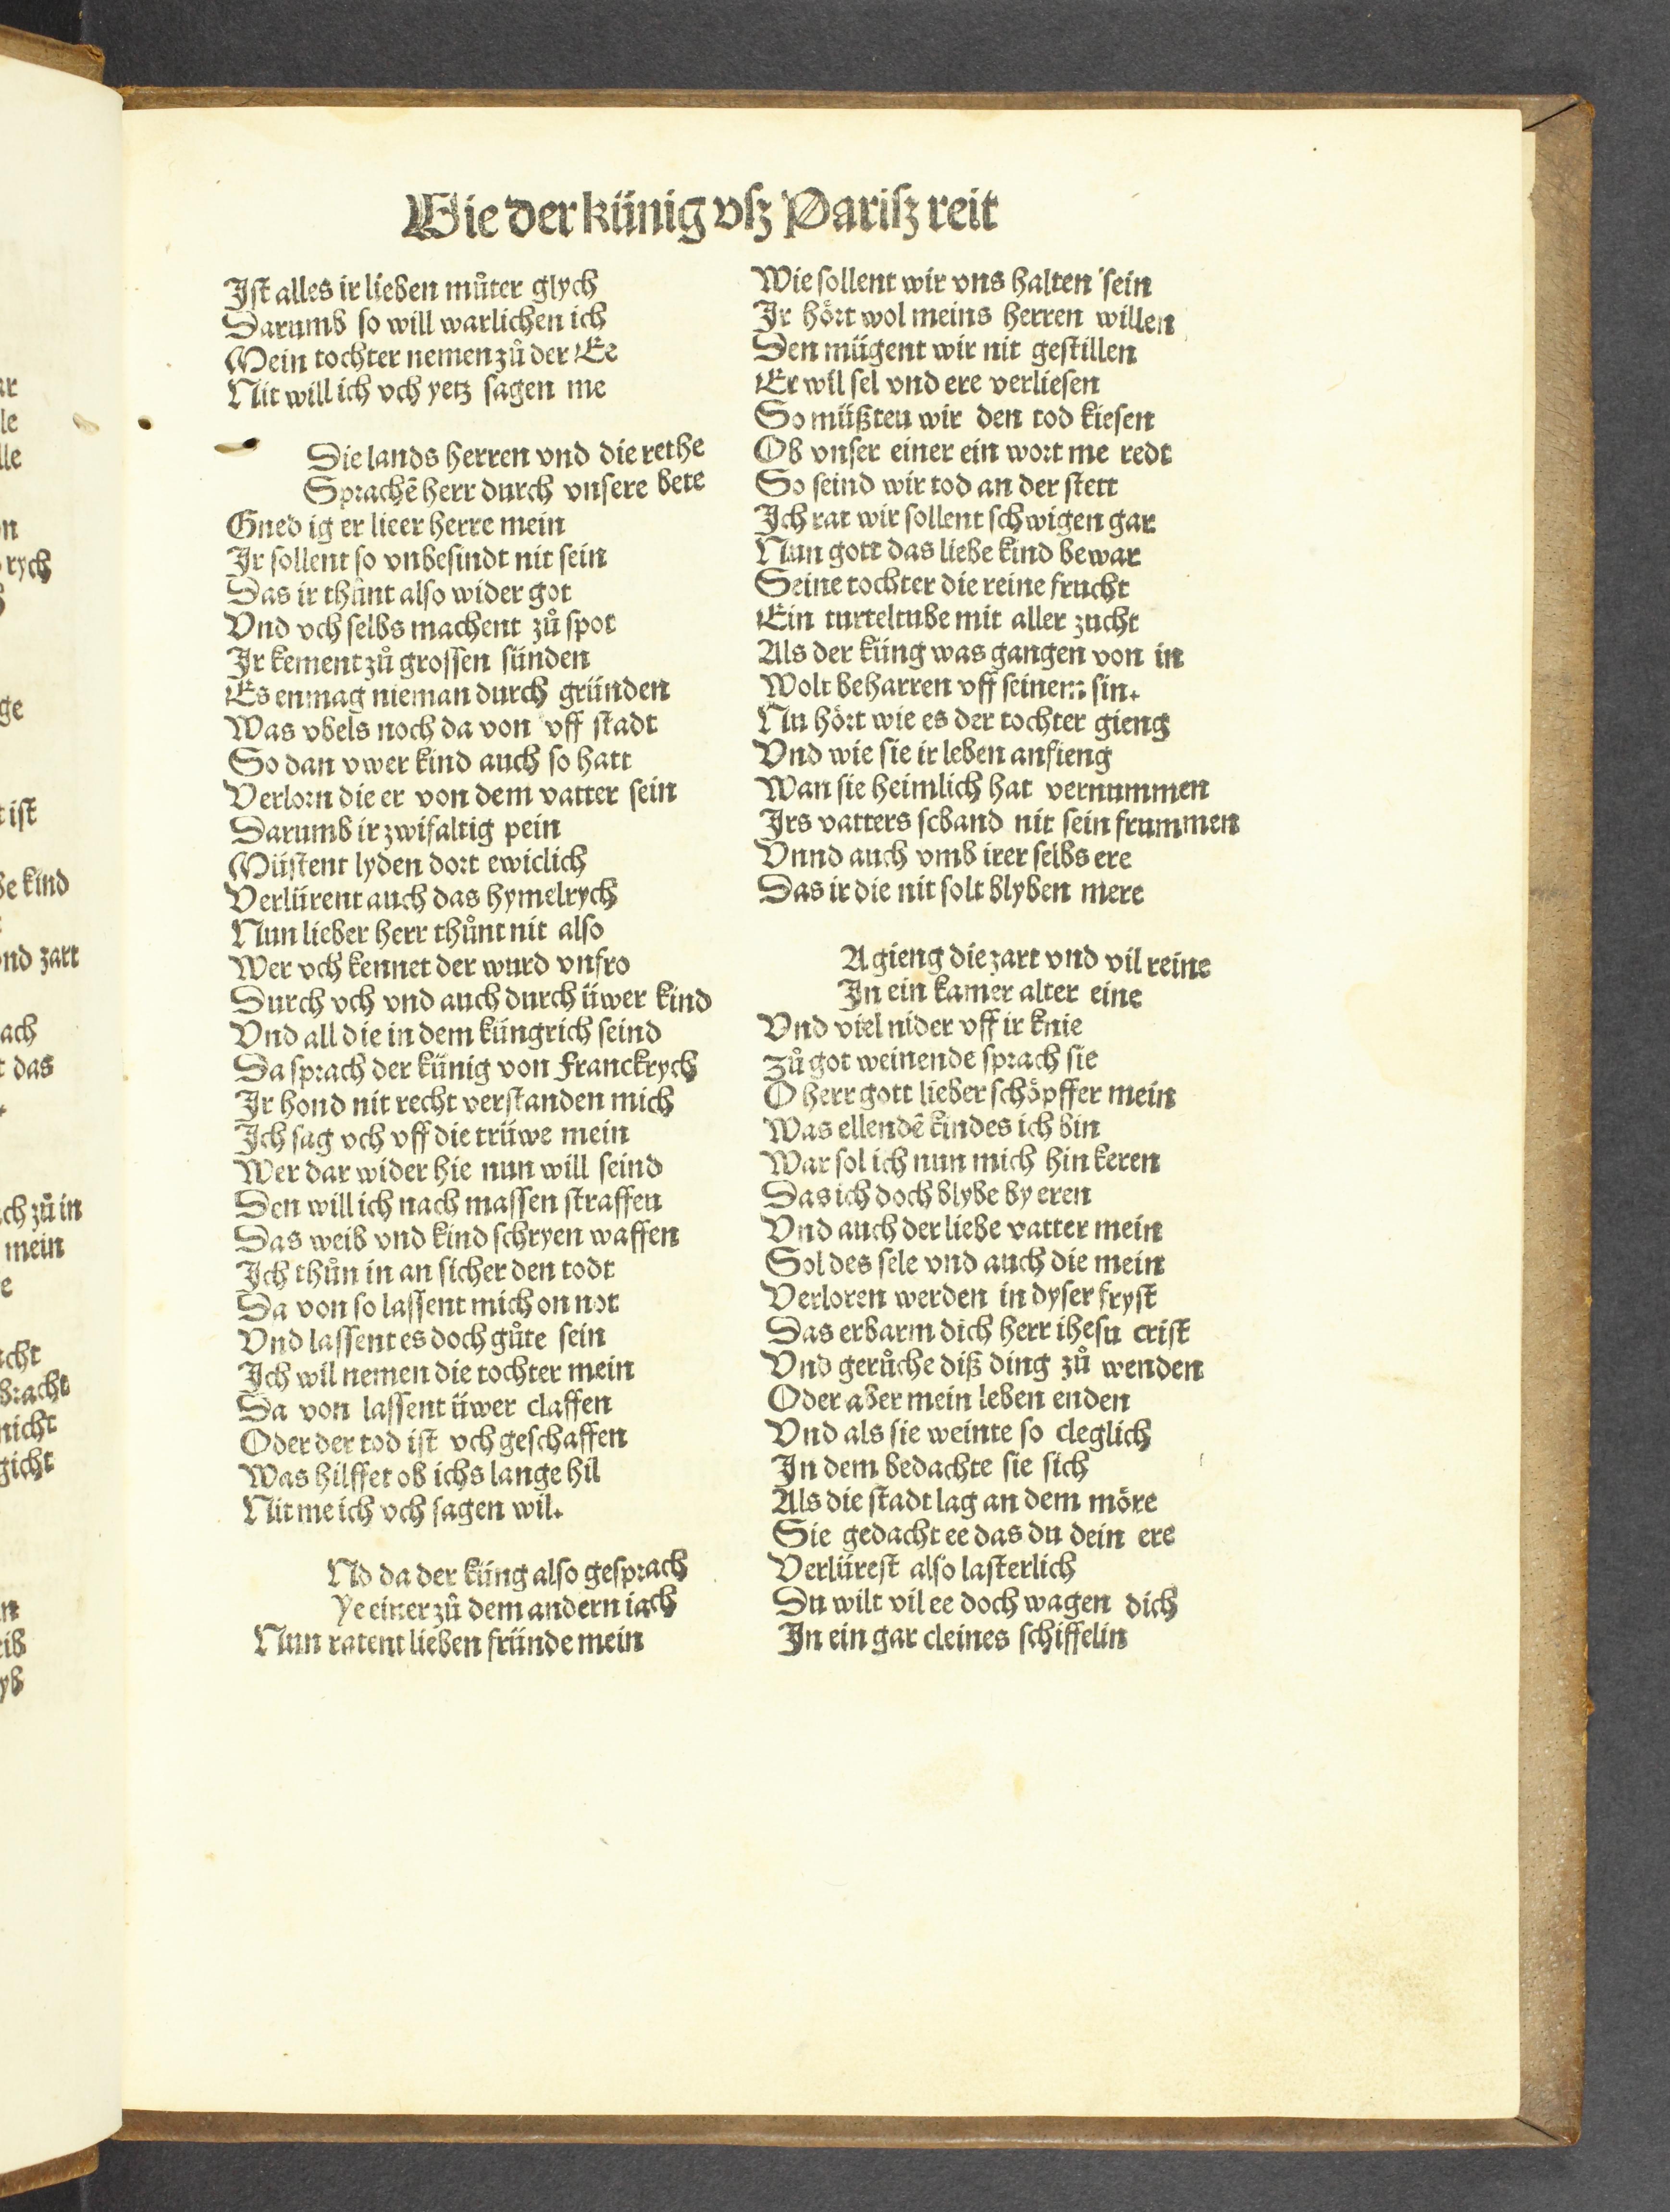 Wie der künig vsz Parisz reit
Ist alles ir lieben můter glych
Darumb so will warlichen ich
Mein tochter nemen zů der Ee
Nit will ich vch yetz sagen me
Die lands herren vnd die rethe
Sprachē herr durch vnsere bete
Gned ig er lieer herre mein
Ir sollent so vnbesindt nit sein
Das ir thůnt also wider got
Vnd vch selbs machent zů spot
Ir kement zů grossen sünden
Es enmag nieman durch gründen
Was vbels noch da von vff stadt
So dan vwer kind auch so hatt
Verlorn die er von dem vatter sein
Darumb ir zwifaltig pein
Müstent lyden dort ewiclich
Verlürent auch das hymelrych
Nun lieber herr thůnt nit also
Wer vch kennet der wurd vnfro
Durch vch vnd auch durch üwer kind
Vnd all die in dem küngrich seind
Da sprach der künig von Franckrych
Ir hond nit recht verstanden mich
Ich sag vch vff die trüwe mein
Wer dar wider hie nun will seind
Den will ich nach massen straffen
Das weib vnd kind schryen waffen
Ich thůn in an sicher den todt
Da von so lassent mich on not
Vnd lassent es doch gůte sein
Ich wil nemen die tochter mein
Da von lassent üwer claffen
Oder der tod ist vch geschaffen
Was hilffet ob ichs lange hil
Nit me ich vch sagen wil.
Nd da der küng also gesprach
Ye einer zů dem andern iach
Nun ratent lieben fründe mein
Wie sollent wir vns halten sein
Ir hört wol meins herren willen
Den mügent wir nit gestillen
Er wil sel vnd ere verliesen
So müßten wir den tod kiesen
Ob vnser einer ein wort me redt
So seind wir tod an der stett
Ich rat wir sollent schwigen gar
Nun gott das liebe kind bewar
Seine tochter die reine frucht
Ein turteltube mit aller zucht
Als der küng was gangen von in
Wolt beharren vff seinem sin.
Nu hört wie es der tochter gieng
Vnd wie sie ir leben anfieng
Wan sie heimlich hat vernummen
Irs vatters schand nit sein frummen
Vnnd auch vmb irer selbs ere
Das ir die nit solt blyben mere
A gieng die zart vnd vil reine
In ein kamer alter eine
Vnd viel nider vff ir knie
zů got weinende sprach sie
O herr gott lieber schöpffer mein
Was ellendē kindes ich bin
War sol ich nun mich hin keren
Das ich doch blybe by eren
Vnd auch der liebe vatter mein
Sol des sele vnd auch die mein
Verloren werden in dyser fryst
Das erbarm dich herr ihesu crist
Vnd gerůche diß ding zů wenden
Oder aber mein leben enden
Vnd als sie weinte so cleglich
In dem bedachte sie sich
Als die stadt lag an dem möre
Sie gedacht ee das du dein ere
Verlürest also lasterlich
Du wilt vil ee doch wagen dich
In ein gar cleines schiffelin